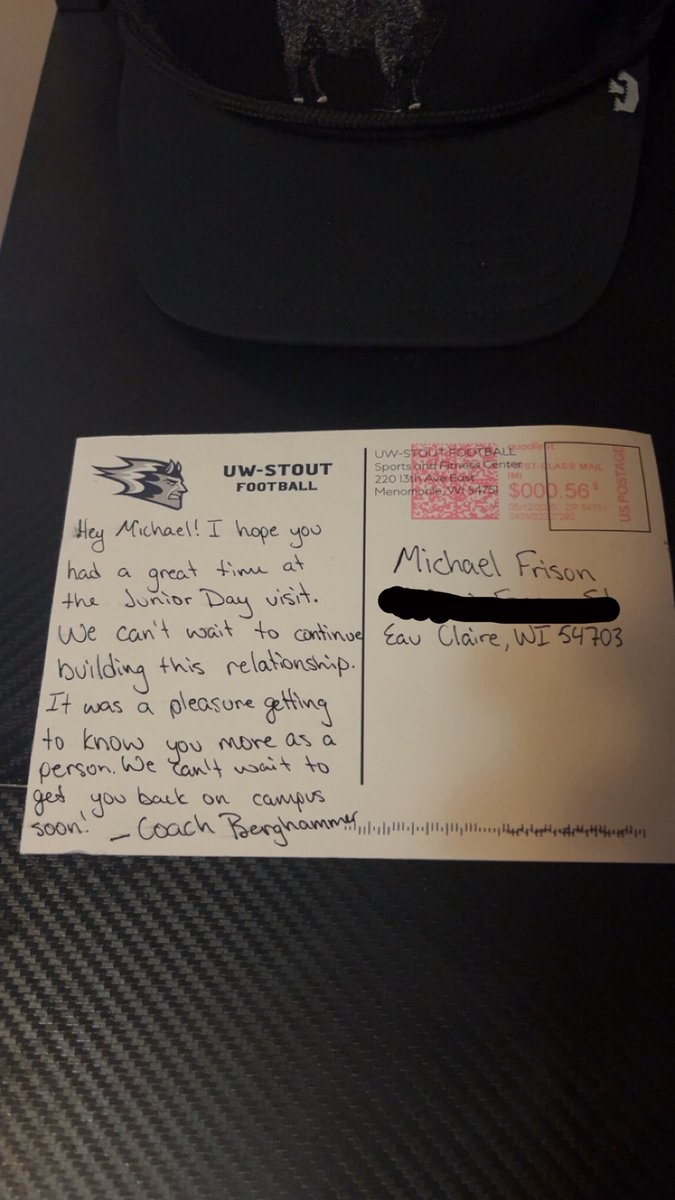 UW-STOUT
FOOTBALL
Hey Michael! I hope you
had a great time at
the Junior Day visit.
We can't wait to continue
building this relationship.
It was a pleasure getting
to know you more as a
person. We can't wait to
get you back on campus
soon! - Coach Berghammer
UW-STOUT FOOTBALL
Sports and Fitness Center
220 13th Ave East
Menomonie, WI 54751
quadient
FIRST-CLASS MAIL
IMI
$000.56
US POSTAGE
Michael Frison
Eau Claire, WI 54703